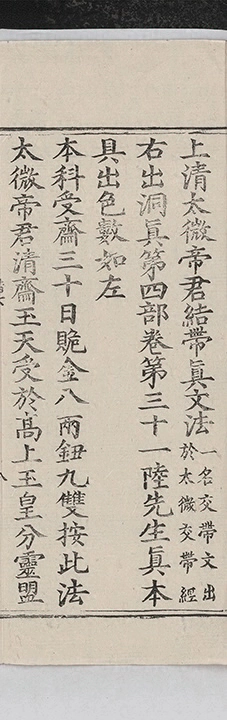 上清太微帝君結帶眞文法一名交帶文出於太微交帶經
右出洞眞第四部卷第三十一陸先生眞本
具出色數如左
本科受齋三十日賝金八兩鈕九雙按此法
太微帝君清齋王天受於高上王皇分靈盟